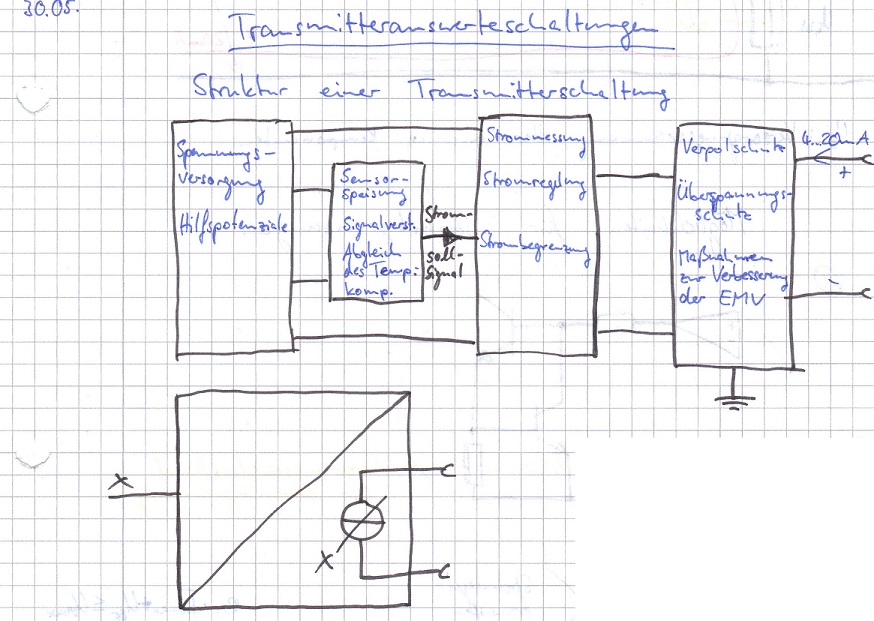 30.05.
Transmitterauswerteschaltungen
Struktur einer Transmitterschaltung
Spannungs-
versorgung
Hilfspotenziale
Sensor-
speisung
Signalverst.
Abgleich
des Temp.
komp.
Strom-
soll-
signal
Strommessung
Stromreglung
Strombegrenzung
Verpolschutz
Überspannungs-
schutz
Maßnahmen
zur Verbesserung
der EMV
4...20mA
+
-
x
x